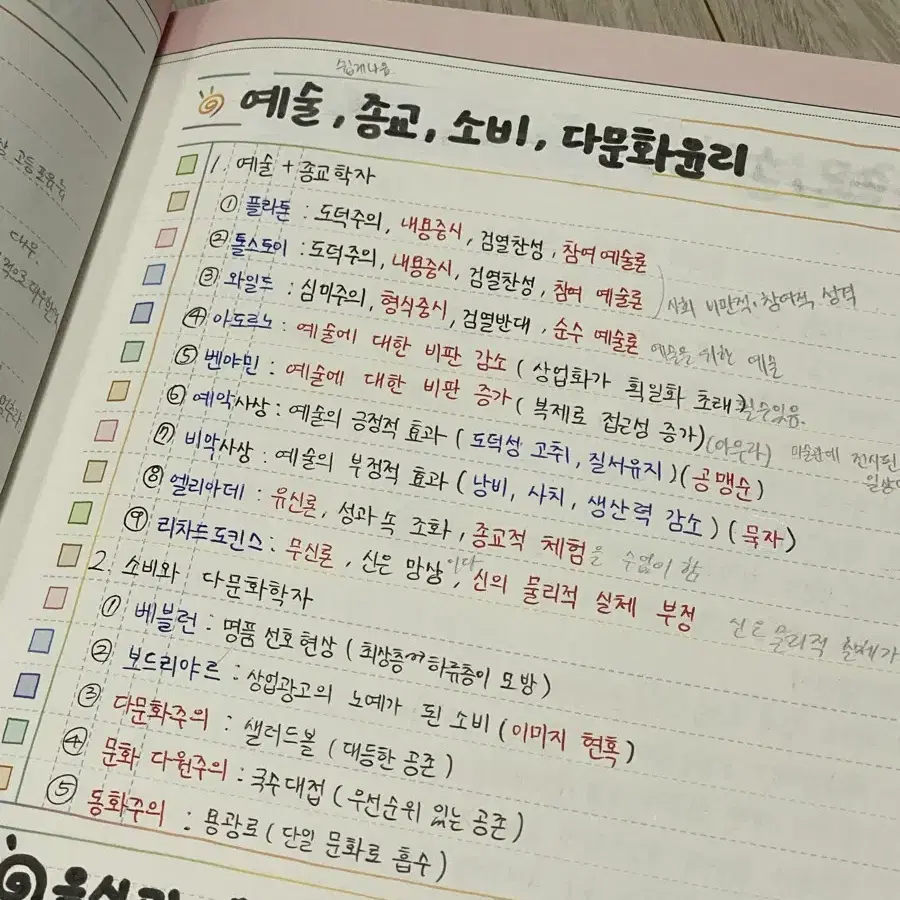 쉽게나옴
예술, 종교, 소비, 다문화윤리
1. 예술 + 종교학자
① 플라톤 : 도덕주의, 내용중시, 검열찬성, 참여 예술론
② 톨스토이 : 도덕주의, 내용중시, 검열찬성, 참여 예술론
사회 비판적·참여적 성격
③ 와일드 : 심미주의, 형식중시, 검열반대, 순수 예술론 예술을 위한 예술
④ 아도르노 : 예술에 대한 비판 감소 ( 상업화가 획일화 초래 )
⑤ 벤야민 : 예술에 대한 비판 증가 ( 복제로 접근성 증가 ) (아우라) 미술관에 전시된
⑥ 예악사상 : 예술의 긍정적 효과 ( 도덕성 고취, 질서유지 ) ( 공맹순 )
⑦ 비악사상 : 예술의 부정적 효과 ( 낭비, 사치, 생산력 감소 ) ( 묵자 )
⑧ 엘리아데 : 유신론, 성과 속 조화, 종교적 체험을 수없이 함
⑨ 리차드 도킨스 : 무신론, 신은 망상이다, 신의 물리적 실체 부정
2. 소비와 다문화학자
① 베블런 : 명품 선호 현상 ( 최상층↔하류층이 모방 )
② 보드리야르 : 상업광고의 노예가 된 소비 ( 이미지 현혹 )
③ 다문화주의 : 샐러드볼 ( 대등한 공존 )
④ 문화 다원주의 : 국수대접 ( 우선순위 있는 공존 )
⑤ 동화주의 : 용광로 ( 단일 문화로 흡수 )